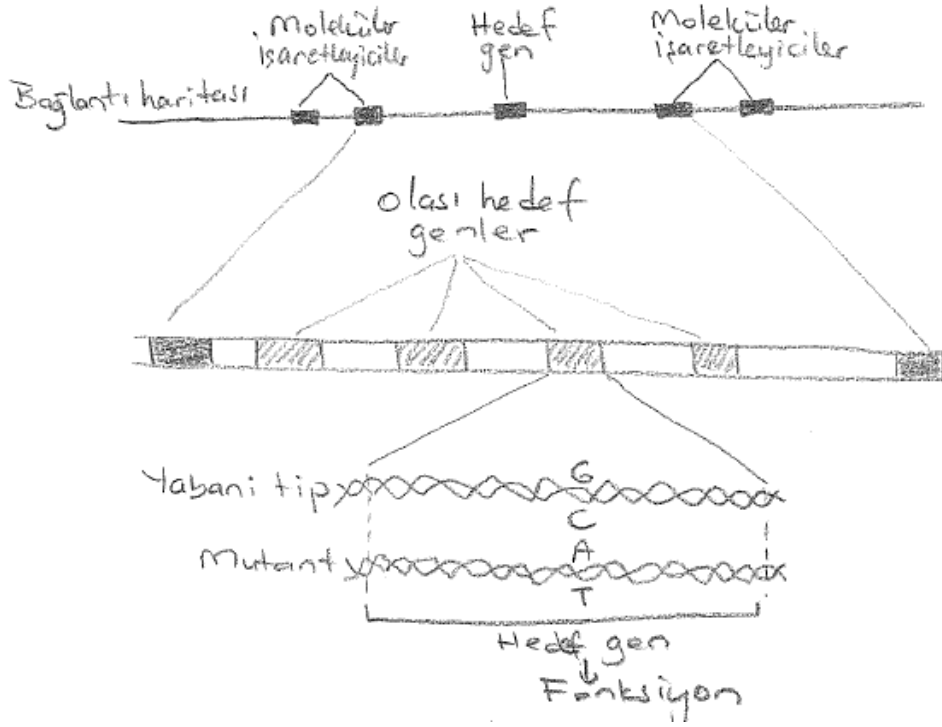 Moleküler
işaretleyiciler
Hedef
gen
Moleküler
işaretleyiciler
Bağlantı haritası
Olası hedef
genler
Yabani tip
G
C
Mutant
A
T
Hedef gen
Fonksiyon